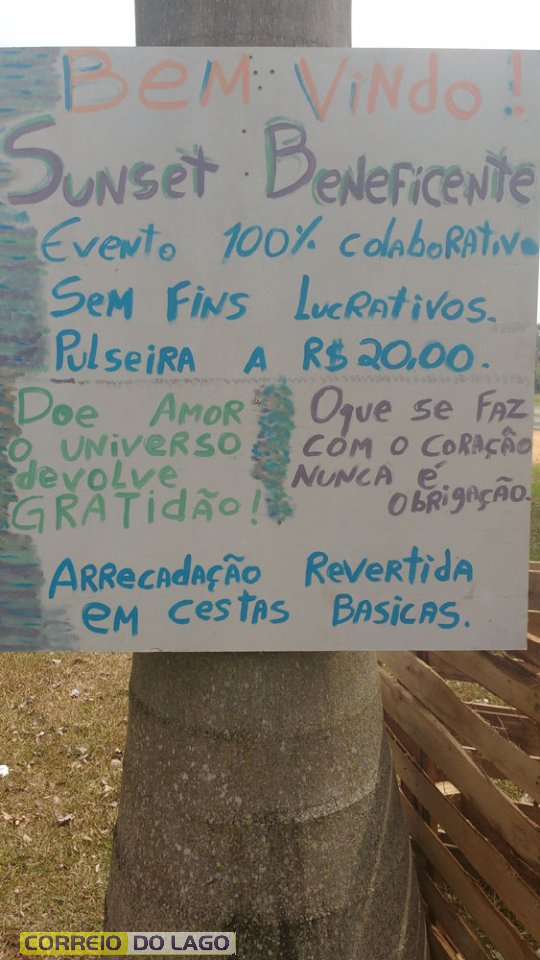 Bem Vindo!
Sunset Beneficente
Evento 100% colaborativo
Sem Fins Lucrativos.
Pulseira a R$20,00.
Doe Amor
o universo
devolve
Gratidão!
Oque se faz
com o coração
nunca é
obrigação.
Arrecadação Revertida
em cestas basicas.
CORREIO DO LAGO